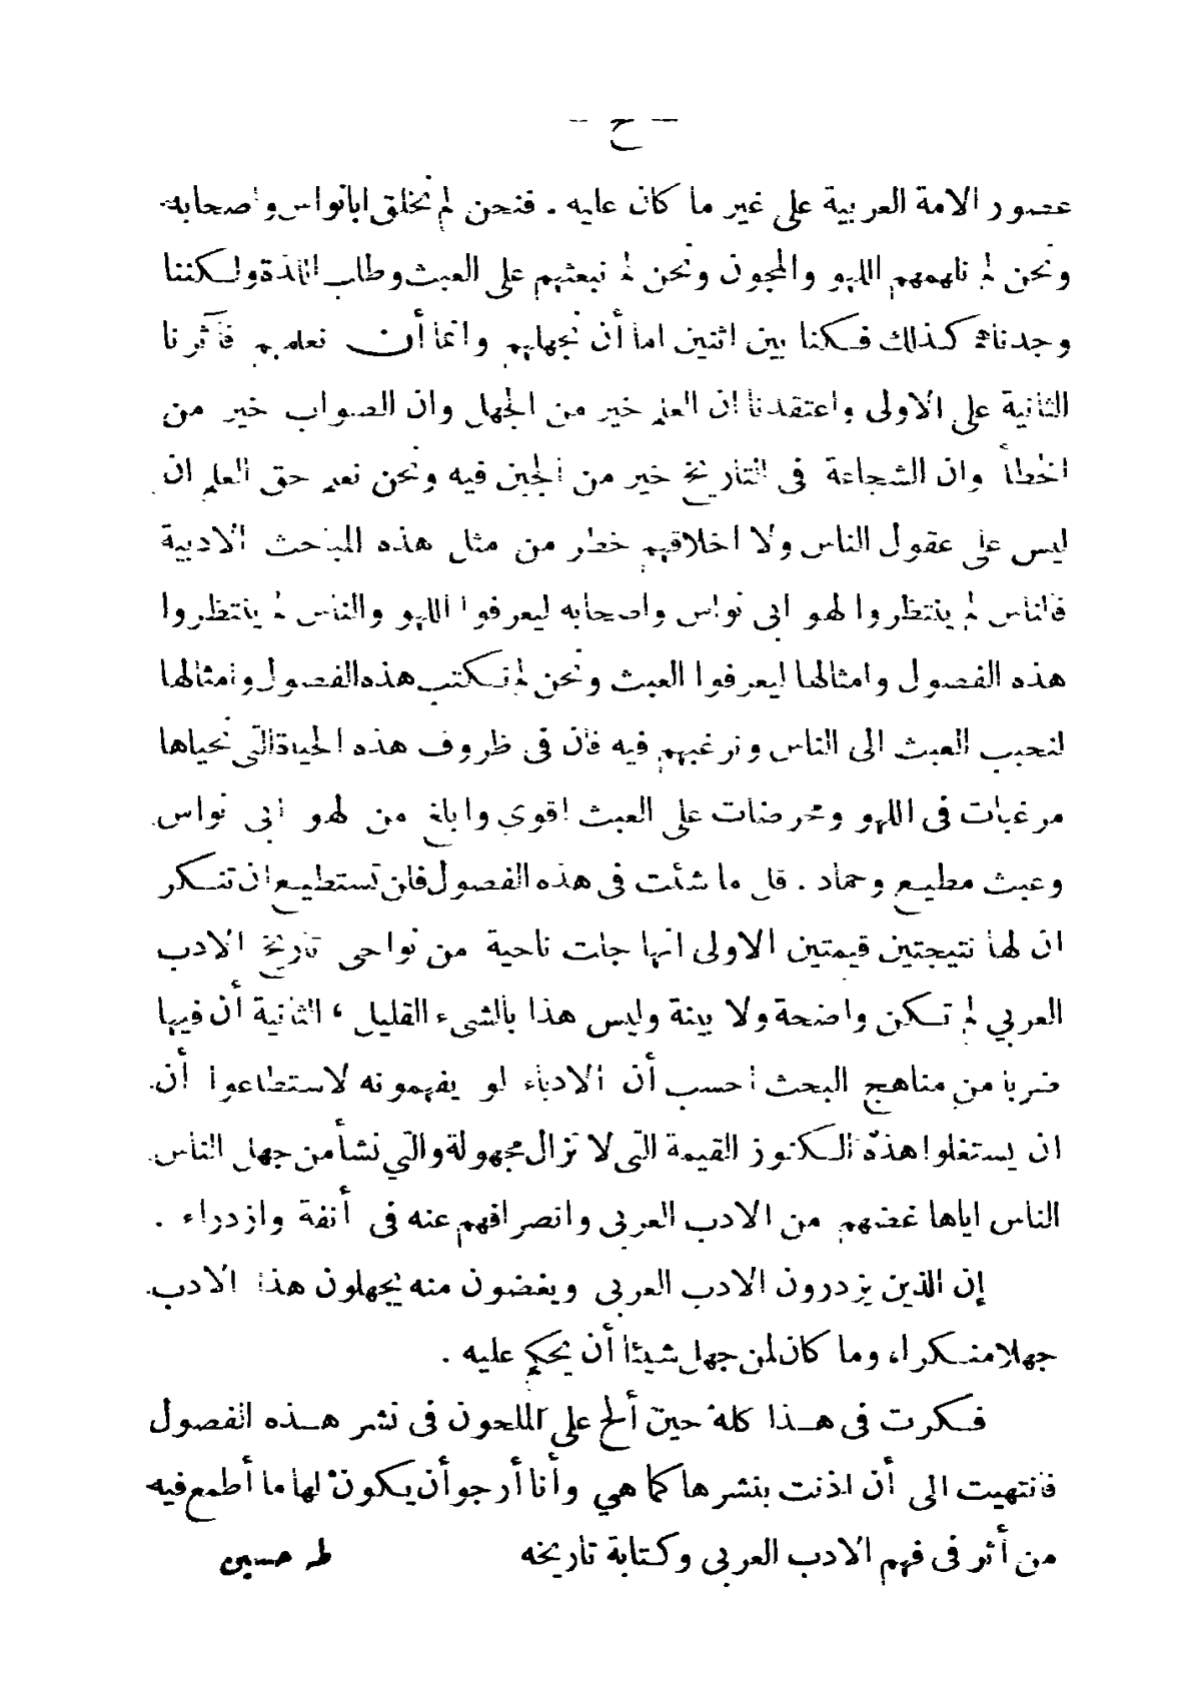 — ح —
عصور الامة العربية على غير ما كان عليه . فنحن لم نخلق ابا نواس واصحابه
ونحن لم نلهمهم اللهو والمجون ونحن لم نبعثهم على العبث وطلب اللذة ولكننا
وجدناهم كذلك فكنا بين اثنين اما أن نجهلهم واما أن نعلمهم فآثرنا
الثانية على الاولى واعتقدنا ان العلم خير من الجهل وان الصواب خير من
الخطأ وان الشجاعة فى التاريخ خير من الجبن فيه ونحن نعلم حق العلم ان
ليس على عقول الناس ولا اخلاقهم خطر من مثل هذه المباحث الادبية
فالناس لم ينتظروا لهو ابى نواس واصحابه ليعرفوا اللهو والناس لم ينتظروا
هذه الفصول وامثالها ليعرفوا العبث ونحن لم نكتب هذه الفصول وامثالها
لنحبب العبث الى الناس ونرغبهم فيه فان فى ظروف هذه الحياة التى نحياها
مرغبات فى اللهو ومحرضات على العبث اقوى وابلغ من لهو ابى نواس
وعبث مطيع وحماد . قل ما شئت فى هذه الفصول فلن تستطيع ان تنكر
ان لها نتيجتين قيمتين الاولى انها جلت ناحية من نواحى تاريخ الادب
العربي لم تكن واضحة ولا بينة وليس هذا بالشىء القليل ، الثانية أن فيها
ضربا من مناهج البحث احسب أن الادباء لو يفهمونه لاستطاعوا أن
ان يستغلوا هذه الكنوز القيمة التى لا تزال مجهولة والتي نشأ من جهل الناس
الناس اياها غضهم من الادب العربى وانصرافهم عنه فى أنفة وازدراء .
إن الذين يزدرون الادب العربى ويغضون منه يجهلون هذا الادب
جهلا منكرا، وما كان لمن جهل شيئا أن يحكم عليه .
فكرت فى هذا كله حين ألح على الملحون فى نشر هذه الفصول
فانتهيت الى أن اذنت بنشرها كما هي وأنا أرجو أن يكون لها ما أطمع فيه
من أثر فى فهم الادب العربى وكتابة تاريخه طه حسين